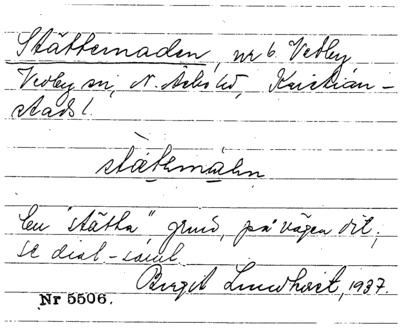 Stättemaden, nr 6 Vedby
Vedby sn, N. Åsbo hd, Kristian-
stads l.
stætemáen
en "stätta" grind, på vägen dit,
se dial-saml.
Birgit Lundkvist, 1937.
Nr 5506.